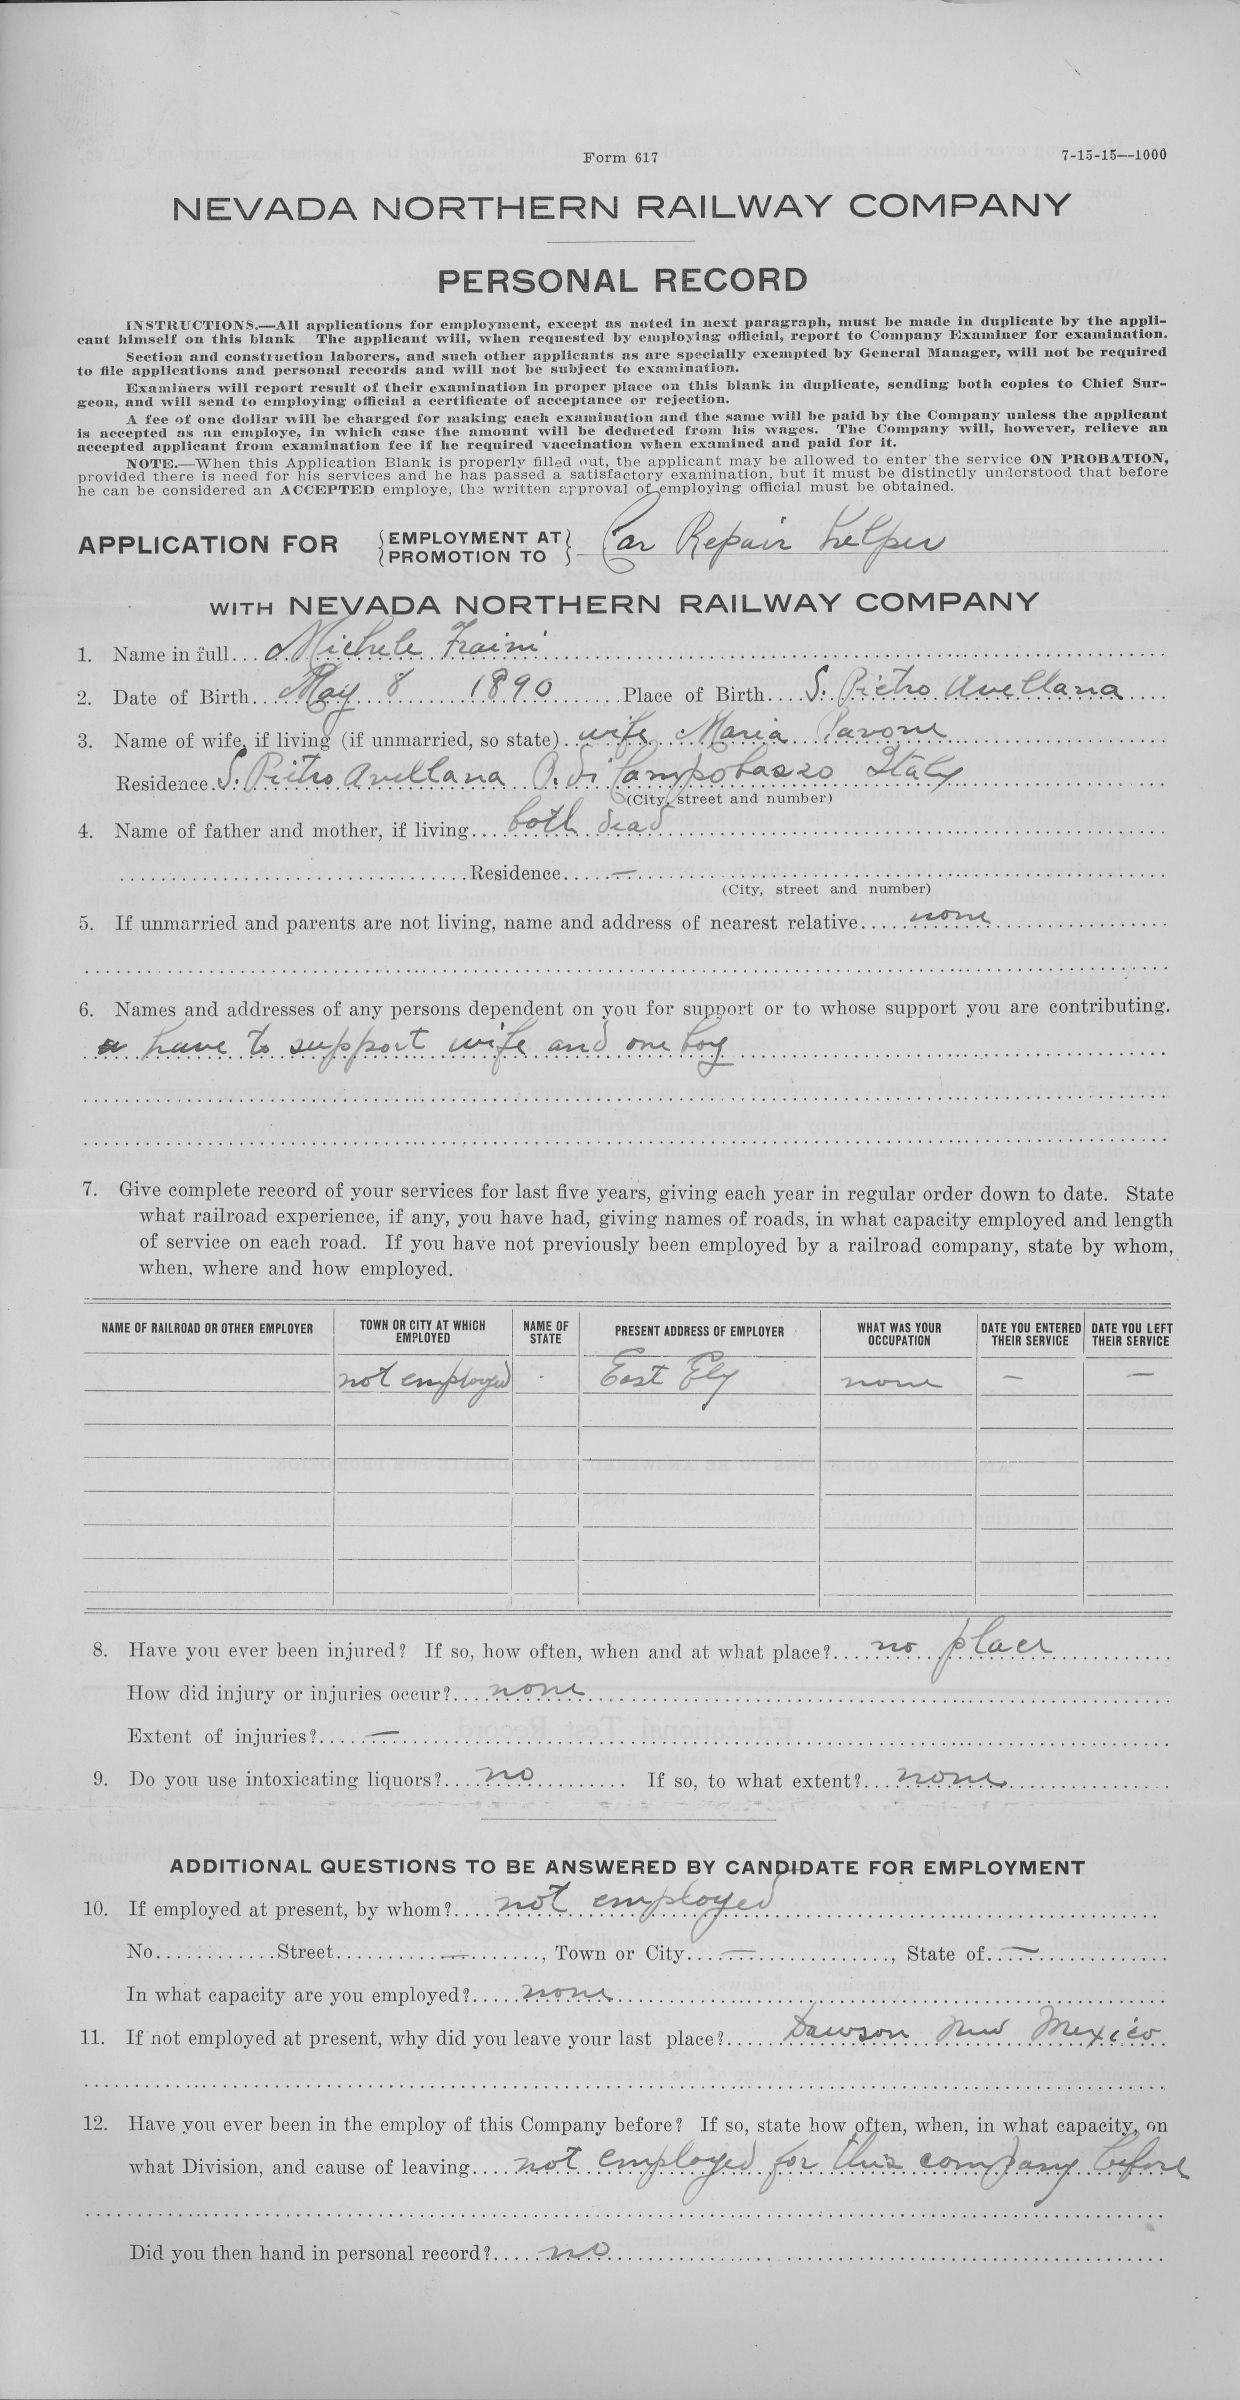 Form 617 7-15-15—1000
NEVADA NORTHERN RAILWAY COMPANY
PERSONAL RECORD
INSTRUCTIONS.—All applications for employment, except as noted in next paragraph, must be made in duplicate by the appli-
cant himself on this blank The applicant will, when requested by employing official, report to Company Examiner for examination.
Section and construction laborers, and such other applicants as are specially exempted by General Manager, will not be required
to file applications and personal records and will not be subject to examination.
Examiners will report result of their examination in proper place on this blank in duplicate, sending both copies to Chief Sur-
geon, and will send to employing official a certificate of acceptance or rejection.
A fee of one dollar will be charged for making each examination and the same will be paid by the Company unless the applicant
is accepted as an employe, in which case the amount will be deducted from his wages. The Company will, however, relieve an
accepted applicant from examination fee if he required vaccination when examined and paid for it.
NOTE.—When this Application Blank is properly filled out, the applicant may be allowed to enter the service ON PROBATION,
provided there is need for his services and he has passed a satisfactory examination, but it must be distinctly understood that before
he can be considered an ACCEPTED employe, the written approval of employing official must be obtained.
APPLICATION FOR {EMPLOYMENT AT} Car Repair helper
{PROMOTION TO}
WITH NEVADA NORTHERN RAILWAY COMPANY
1. Name in full... Michele Fraini
2. Date of Birth.. May 8 1890 ......Place of Birth.... S. Pietro Avellana
3. Name of wife, if living (if unmarried, so state).. wife Maria Pavone
Residence. S. Pietro Avellana P. di Campobasso Italy
(City, street and number)
4. Name of father and mother, if living.... both dead
Residence.....—
(City, street and number)
5. If unmarried and parents are not living, name and address of nearest relative.... none
6. Names and addresses of any persons dependent on you for support or to whose support you are contributing.
have to support wife and one boy
7. Give complete record of your services for last five years, giving each year in regular order down to date. State
what railroad experience, if any, you have had, giving names of roads, in what capacity employed and length
of service on each road. If you have not previously been employed by a railroad company, state by whom,
when, where and how employed.
NAME OF RAILROAD OR OTHER EMPLOYER TOWN OR CITY AT WHICH EMPLOYED NAME OF STATE PRESENT ADDRESS OF EMPLOYER WHAT WAS YOUR OCCUPATION DATE YOU ENTERED THEIR SERVICE DATE YOU LEFT THEIR SERVICE
not employed East Ely none — —
8. Have you ever been injured? If so, how often, when and at what place?.... no place
How did injury or injuries occur?.... none
Extent of injuries?.....—
9. Do you use intoxicating liquors?.... no ......... If so, to what extent?... none
ADDITIONAL QUESTIONS TO BE ANSWERED BY CANDIDATE FOR EMPLOYMENT
10. If employed at present, by whom?.... not employed
No............Street..........—......., Town or City....—.............., State of..—
In what capacity are you employed?..... none
11. If not employed at present, why did you leave your last place?..... Dawson New Mexico
12. Have you ever been in the employ of this Company before? If so, state how often, when, in what capacity, on
what Division, and cause of leaving.... not employed for this company before
Did you then hand in personal record?..... no